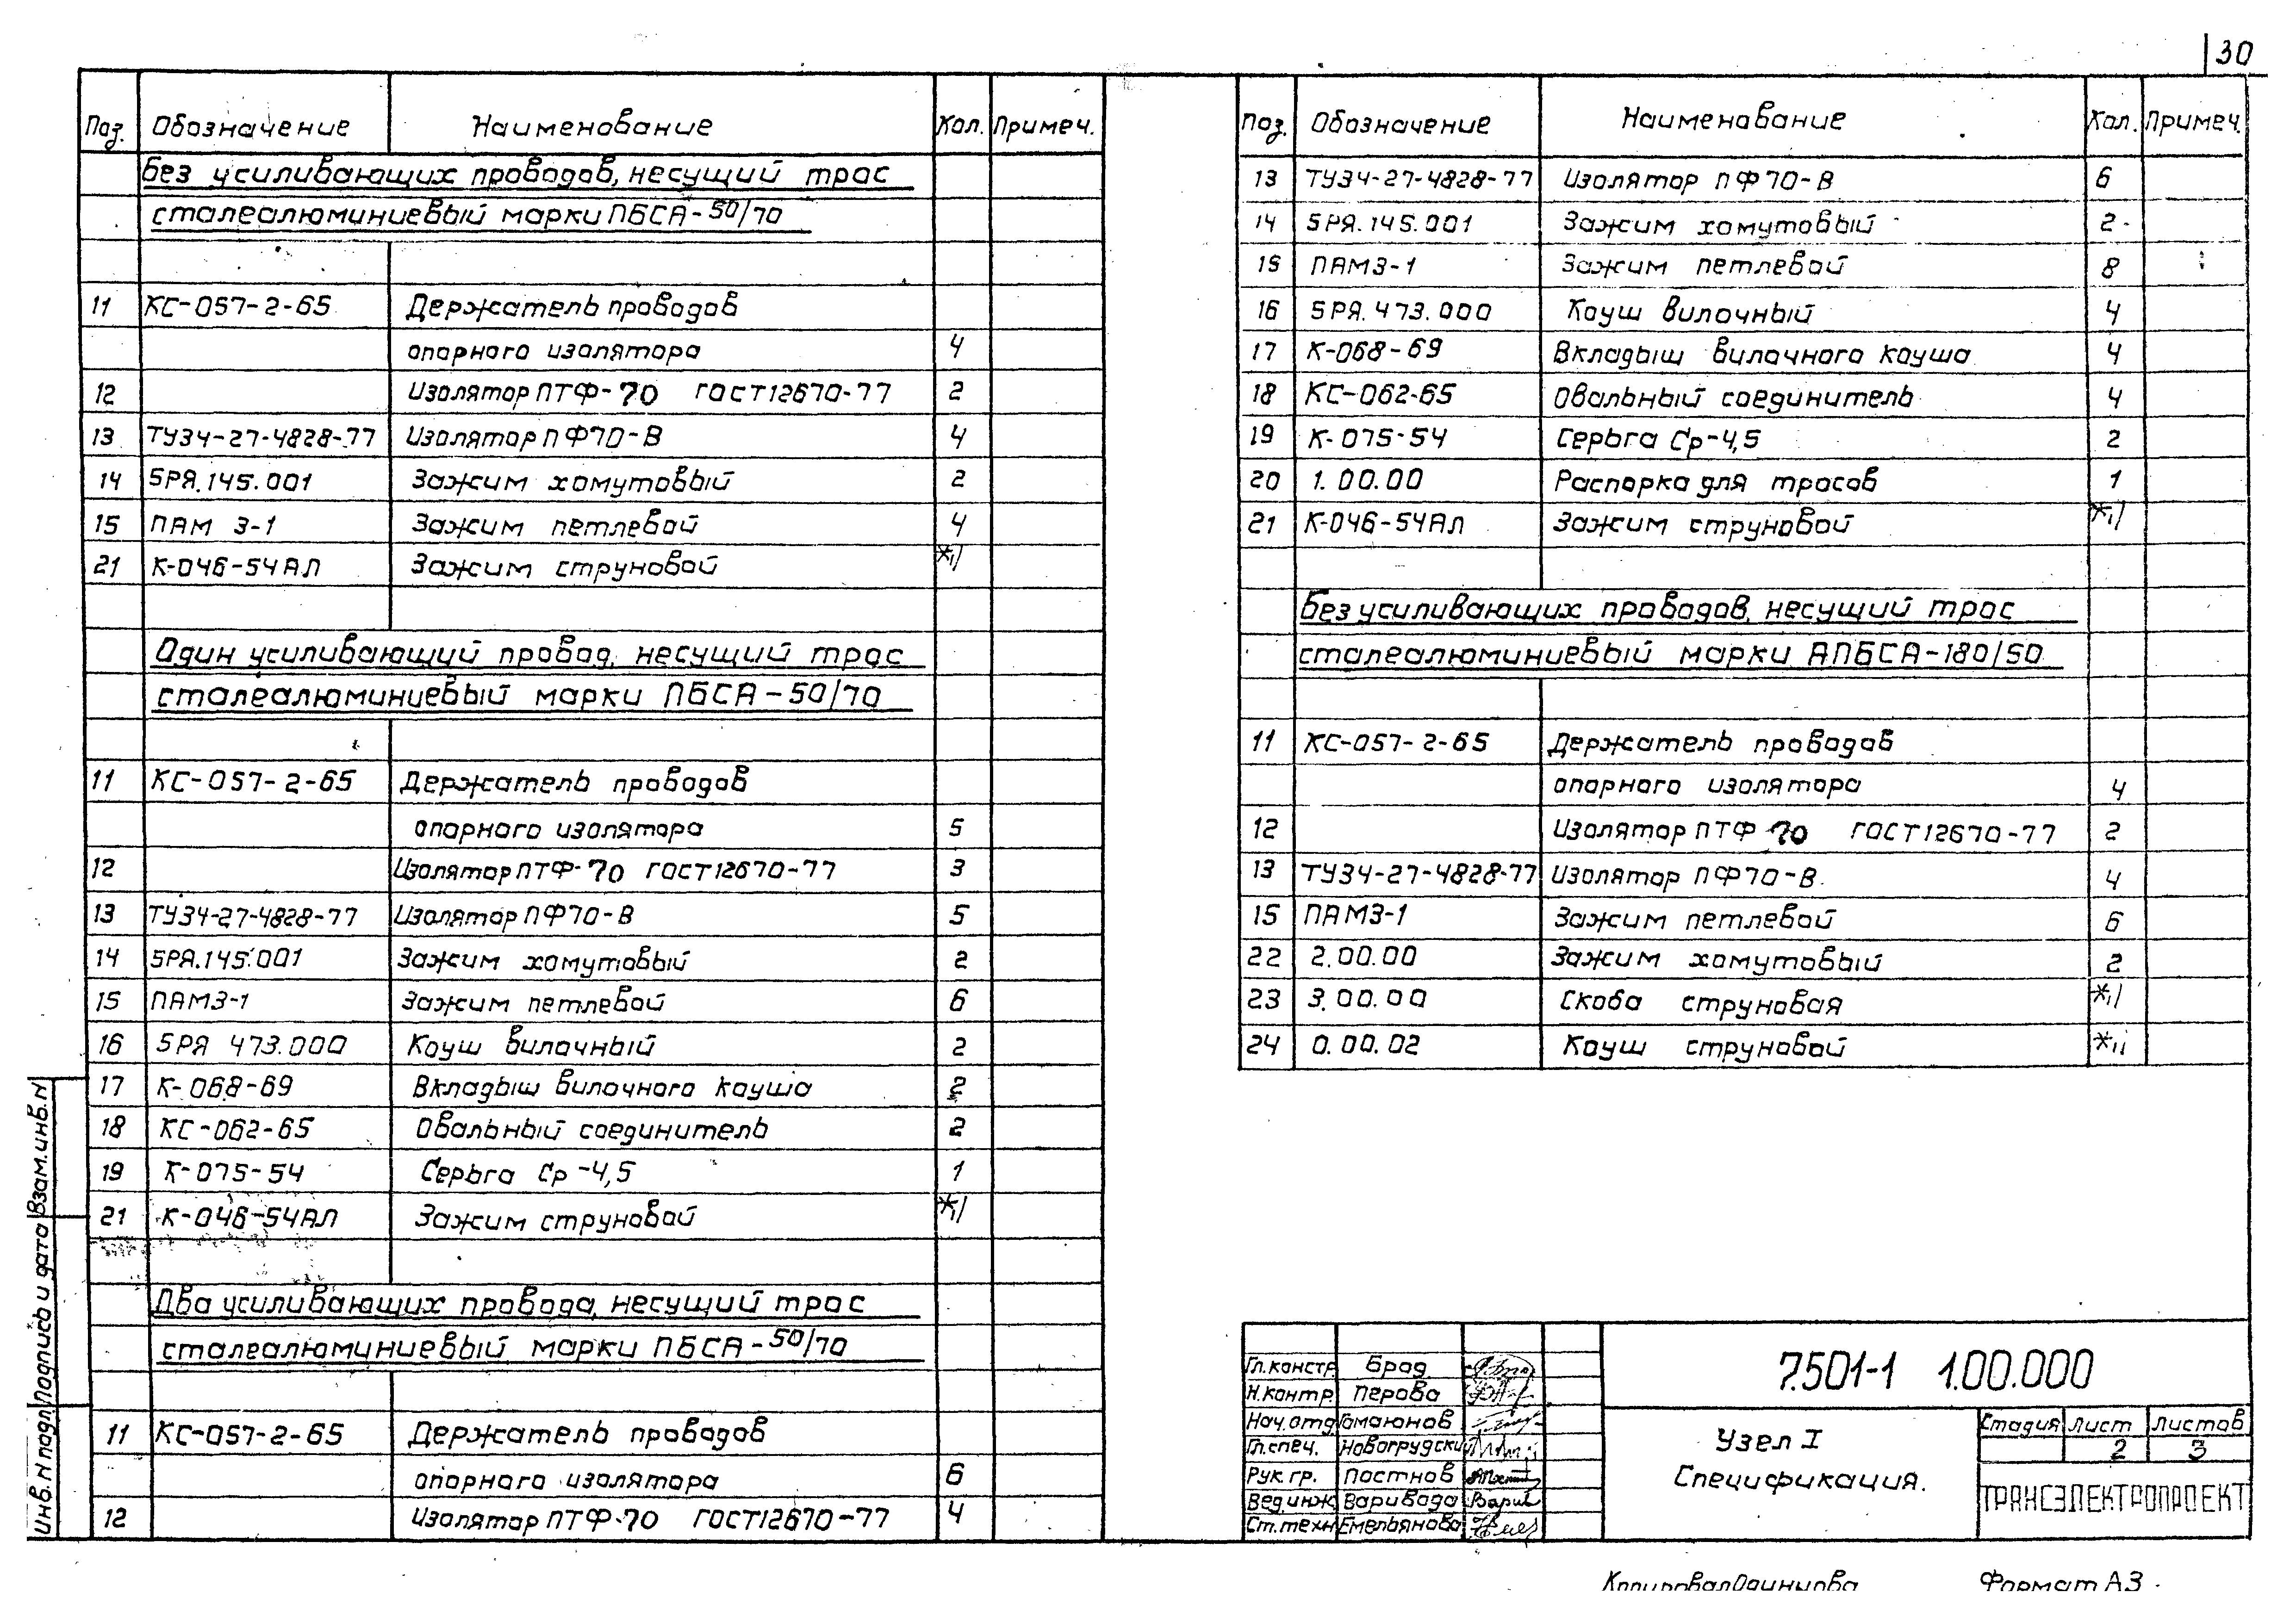 30
Поз. Обозначение Наименование Кол. Примеч.
Без усиливающих проводов, несущий трос
сталеалюминиевый марки ПБСА-50/70
11 КС-057-2-65 Держатель проводов
опорного изолятора 4
12 Изолятор ПТФ-70 ГОСТ12670-77 2
13 ТУ34-27-4828-77 Изолятор ПФ70-В 4
14 5РЯ.145.001 Зажим хомутовый 2
15 ПАМ 3-1 Зажим петлевой 4
21 К-046-54АЛ Зажим струновой *1)
Один усиливающий провод, несущий трос
сталеалюминиевый марки ПБСА-50/70
11 КС-057-2-65 Держатель проводов
опорного изолятора 5
12 Изолятор ПТФ-70 ГОСТ12670-77 3
13 ТУ34-27-4828-77 Изолятор ПФ70-В 5
14 5РЯ.145.001 Зажим хомутовый 2
15 ПАМ3-1 Зажим петлевой 6
16 5РЯ 473.000 Коуш вилочный 2
17 К-068-69 Вкладыш вилочного коуша 2
18 КС-062-65 Овальный соединитель 2
19 К-075-54 Серьга Ср-4,5 1
21 К-046-54АЛ Зажим струновой *1)
Два усиливающих провода, несущий трос
сталеалюминиевый марки ПБСА-50/70
11 КС-057-2-65 Держатель проводов
опорного изолятора 6
12 Изолятор ПТФ-70 ГОСТ12670-77 4
Поз. Обозначение Наименование Кол. Примеч.
13 ТУ34-27-4828-77 Изолятор ПФ70-В 6
14 5РЯ.145.001 Зажим хомутовый 2
15 ПАМ3-1 Зажим петлевой 8
16 5РЯ.473.000 Коуш вилочный 4
17 К-068-69 Вкладыш вилочного коуша 4
18 КС-062-65 Овальный соединитель 4
19 К-075-54 Серьга Ср-4,5 2
20 1.00.00 Распорка для тросов 1
21 К-046-54АЛ Зажим струновой *1)
Без усиливающих проводов, несущий трос
сталеалюминиевый марки АПБСА-180/50
11 КС-057-2-65 Держатель проводов
опорного изолятора 4
12 Изолятор ПТФ 70 ГОСТ12670-77 2
13 ТУ34-27-4828-77 Изолятор ПФ70-В 4
15 ПАМ3-1 Зажим петлевой 6
22 2.00.00 Зажим хомутовый 2
23 3.00.00 Скоба струновая *1)
24 0.00.02 Коуш струновой *1)
Гл.констр. Брод
Н.контр. Перова
Нач.отд. Гамаюнов
Гл.спец. Новогрудский
Рук.гр. Постнов
Вед.инж. Варивода
Ст.техн. Емельянова
7.501-1 1.00.000
Узел I
Спецификация.
Стадия Лист Листов
2 3
ТРАНСЭЛЕКТРОПРОЕКТ
Инв.N подл. Подпись и дата Взам.инв.N
Копировал
Формат А3